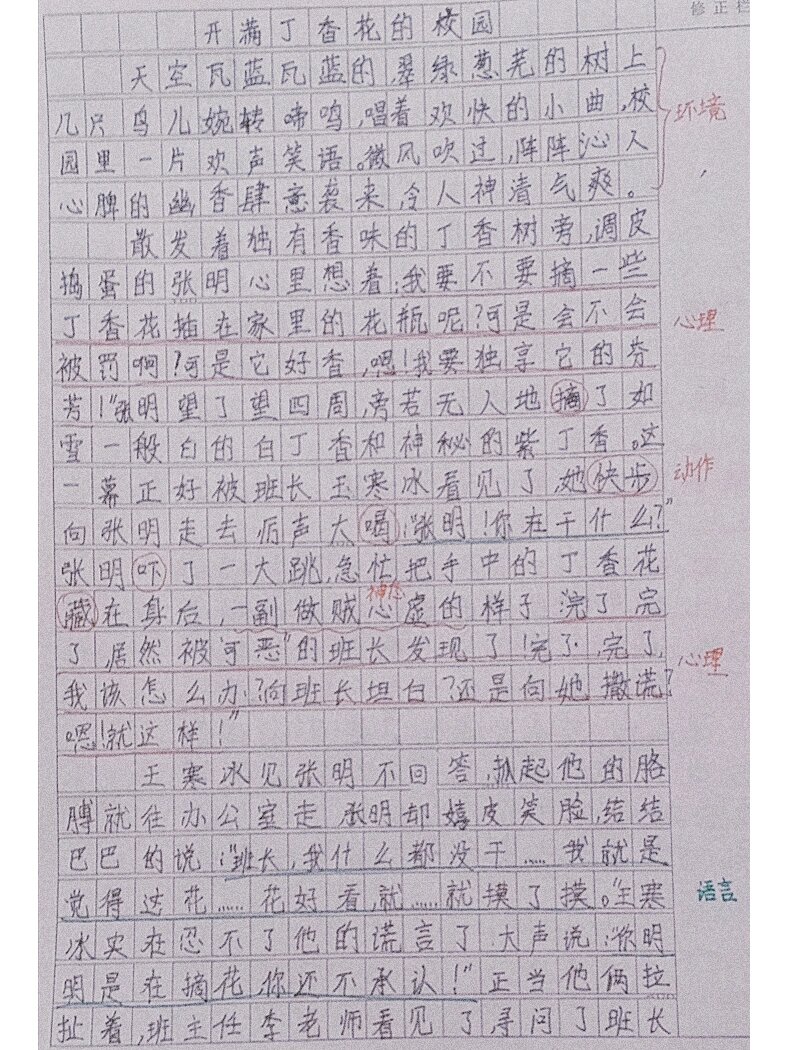 修正栏
开满丁香花的校园
天空瓦蓝瓦蓝的,翠绿葱芜的树上
几只鸟儿婉转啼鸣,唱着欢快的小曲,校
环境
园里一片欢声笑语。微风吹过,阵阵沁人
心脾的幽香肆意袭来,令人神清气爽。
散发着独有香味的丁香树旁,调皮
捣蛋的张明心里想着:我要不要摘一些
丁香花插在家里的花瓶呢?可是会不会
心理
被罚啊?可是它好香,嗯!我要独享它的芬
芳!"张明望了望四周,旁若无人地摘了如
雪一般白的白丁香和神秘的紫丁香。这
一幕正好被班长王寒冰看见了,她快步
动作
向张明走去厉声大喝:"张明!你在干什么?"
张明吓了一大跳,急忙把手中的丁香花
神态
藏在身后,一副做贼心虚的样子"完了完
了,居然被"可恶"的班长发现了!完了,完了,
心理
我该怎么办?向班长坦白?还是向她撒谎?
嗯!就这样!"
王寒冰见张明不回答,抓起他的胳
膊就往办公室走,张明却嬉皮笑脸,结结
巴巴的说:"班长,我什么都没干……我就是
觉得这花……花好看,就……就摸了摸。"王寒
语言
冰实在忍不了他的谎言了,大声说:"你明
明是在摘花,你还不承认!"正当他俩拉
扯着,班主任李老师看见了,寻问了班长